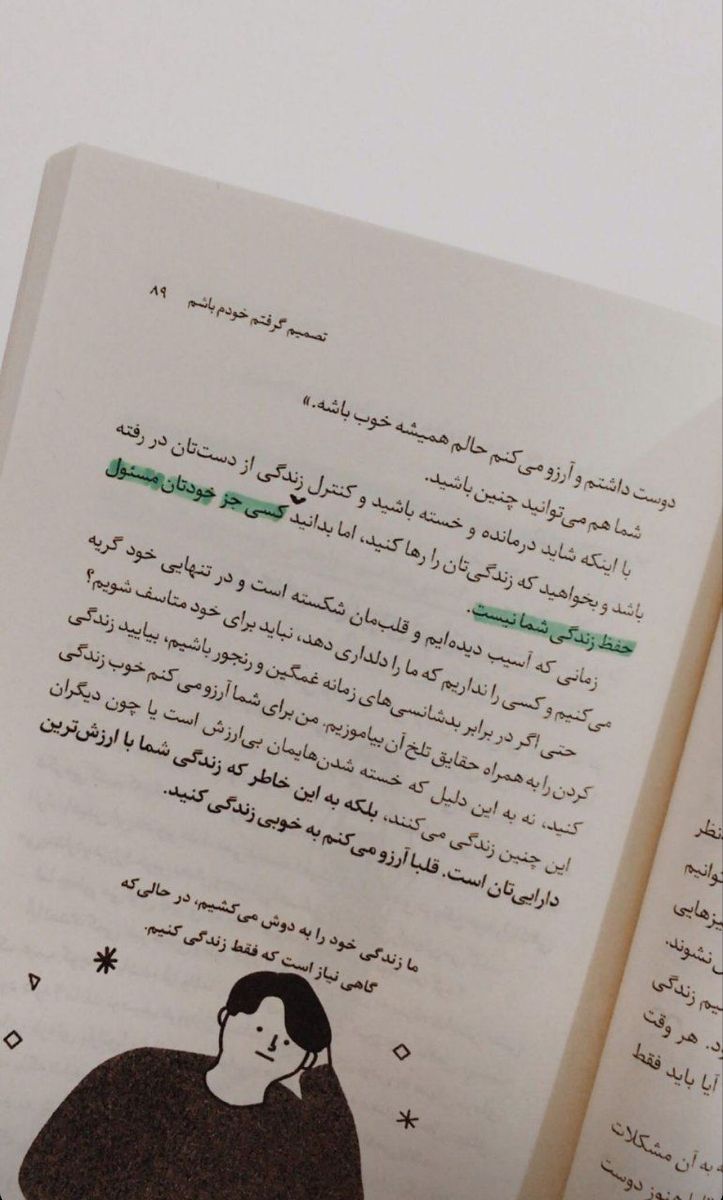 تصمیم گرفتم خودم باشم ۸۹
دوست داشتم و آرزو می‌کنم حالم همیشه خوب باشه.»
شما هم می‌توانید چنین باشید.
با اینکه شاید درمانده و خسته باشید و کنترل زندگی از دست‌تان در رفته
باشد و بخواهید که زندگی‌تان را رها کنید، اما بدانید کسی جز خودتان مسئول
حفظ زندگی شما نیست.
زمانی که آسیب دیده‌ایم و قلب‌مان شکسته است و در تنهایی خود گریه
می‌کنیم و کسی را نداریم که ما را دلداری دهد، نباید برای خود متاسف شویم؟
حتی اگر در برابر بدشانسی‌های زمانه غمگین و رنجور باشیم، بیایید زندگی
کردن را به همراه حقایق تلخ آن بیاموزیم. من برای شما آرزو می‌کنم خوب زندگی
کنید، نه به این دلیل که خسته شدن‌هایمان بی‌ارزش است یا چون دیگران
این چنین زندگی می‌کنند، بلکه به این خاطر که زندگی شما با ارزش‌ترین
دارایی‌تان است. قلبا آرزو می‌کنم به خوبی زندگی کنید.
ما زندگی خود را به دوش می‌کشیم، در حالی‌که
گاهی نیاز است که فقط زندگی کنیم.
نظر
توانیم
یزهایی
نشوند.
یم زندگی
د. هر وقت
آیا باید فقط
به آن مشکلات
هنوز دوست